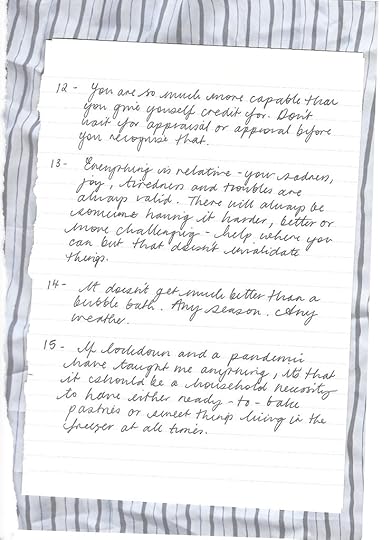 12 - You are so much more capable than
you give yourself credit for. Don't
wait for appraisal or approval before
you recognise that.
13 - Everything is relative - your sadness,
joy, tiredness and troubles are
always valid. There will always be
someone having it harder, better or
more challenging - help where you
can but that doesn't invalidate
things.
14 - It doesn't get much better than a
bubble bath. Any season. Any
weather.
15 - If lockdown and a pandemic
have taught me anything, its that
it should be a household necessity
to have either ready - to - bake
pastries or sweet things living in the
freezer at all times.